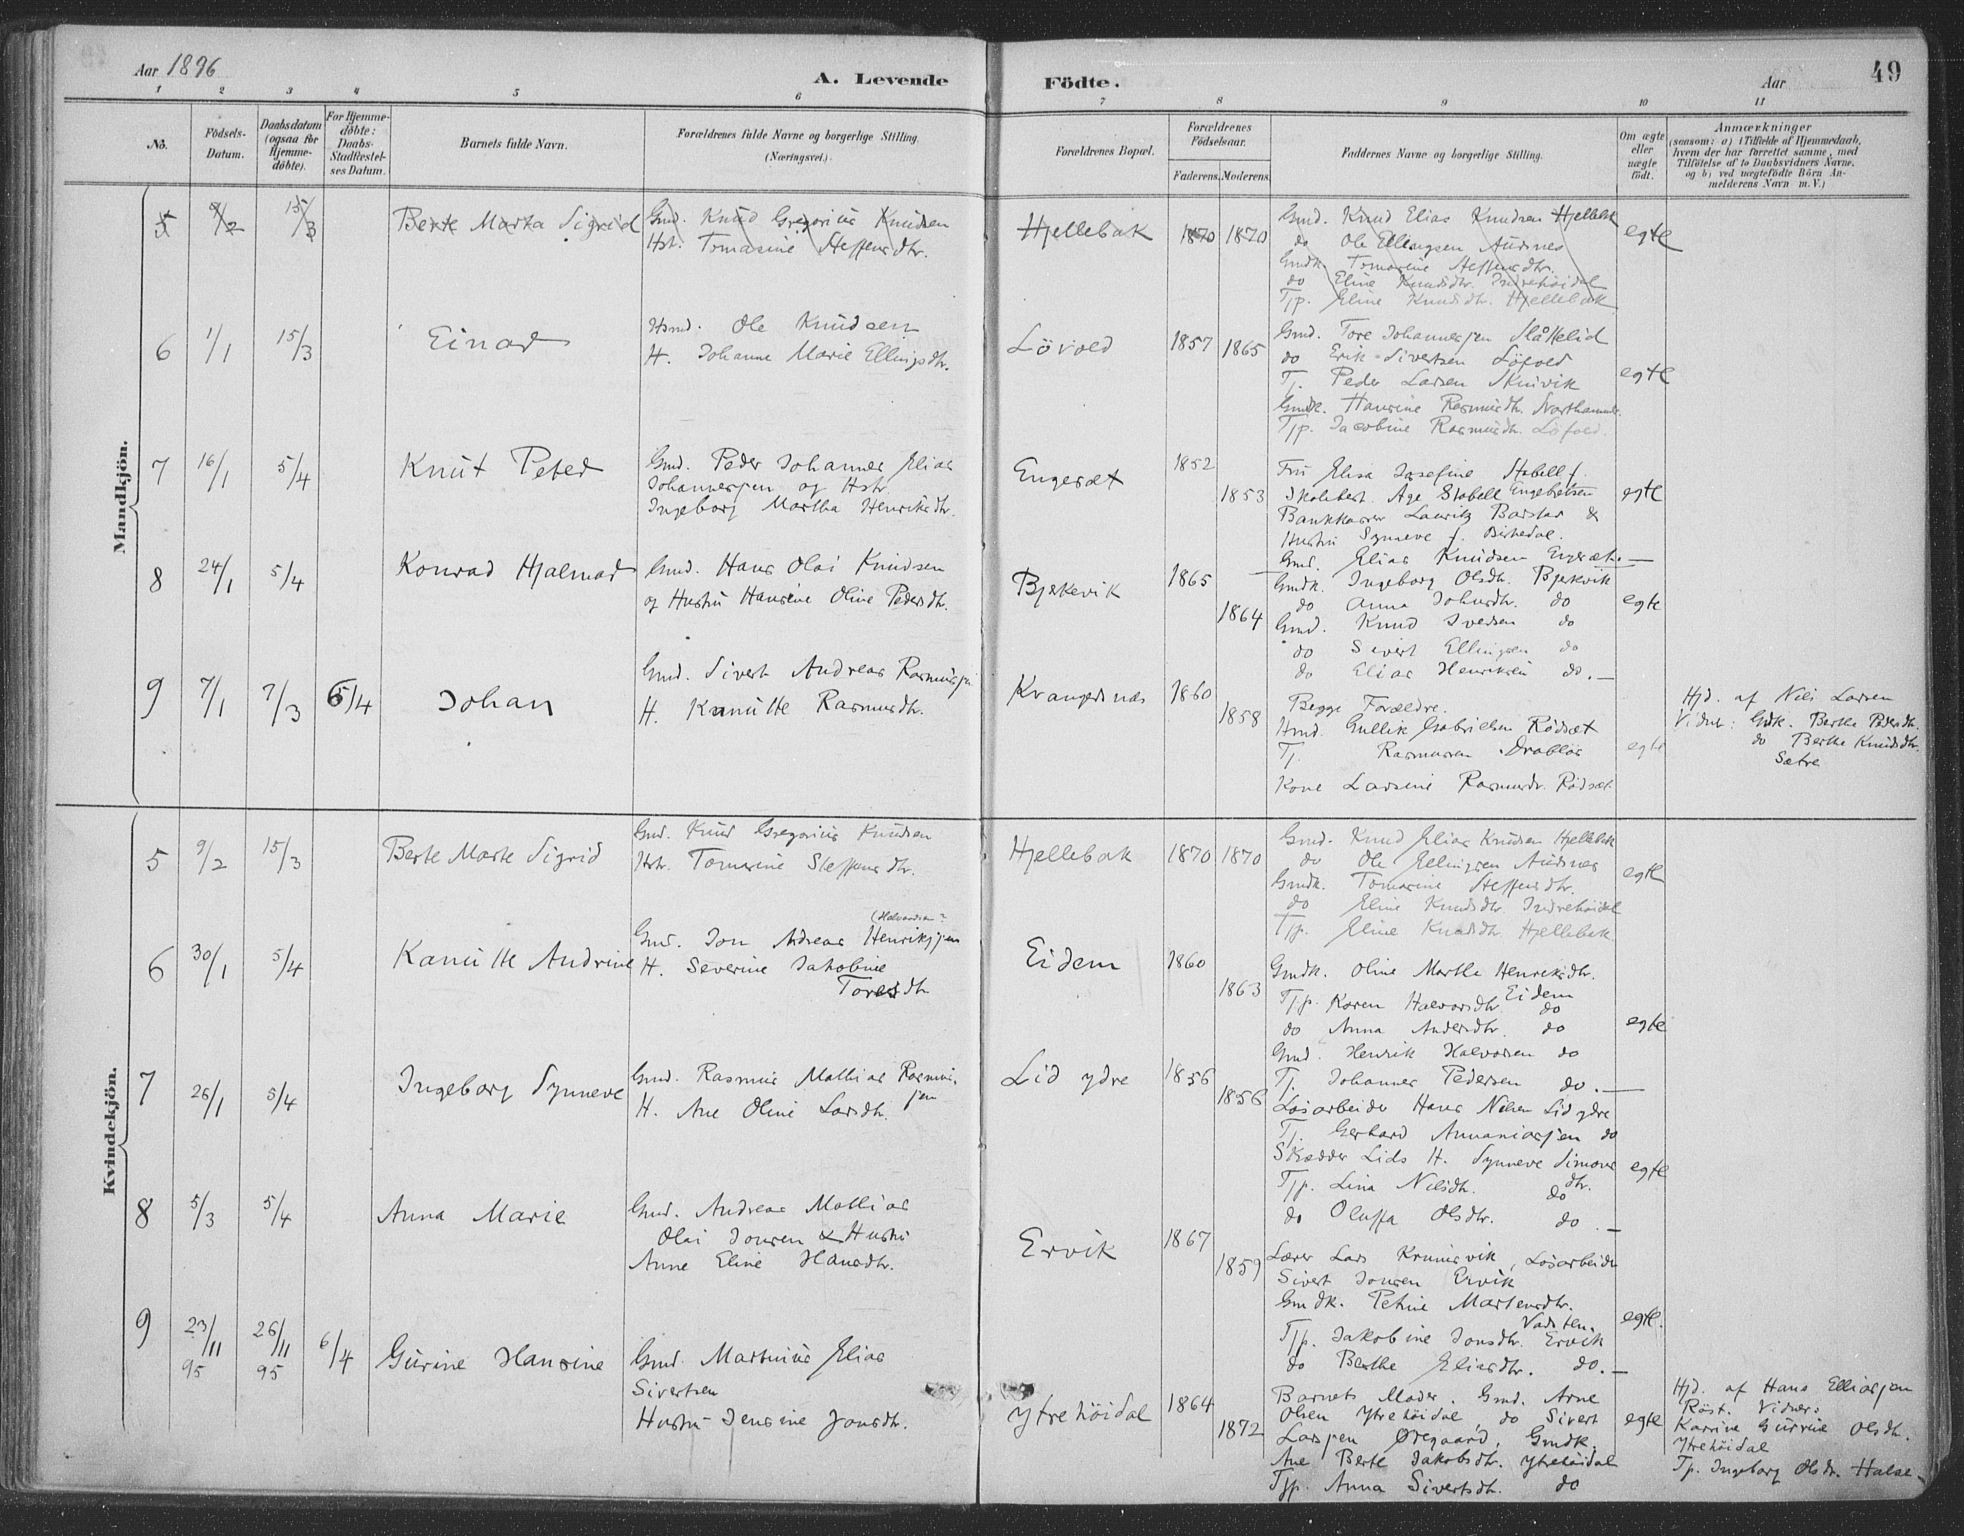 Aar 1896
A. Levende
Födte.
Aar
49
1 2 3 4 5 6 7 8 9 10 11
No.
Födsels-
Datum.
Daabsdatum
(ogsaa for
Hjemme-
døbte).
For Hjemme-
døbte:
Daabs-
Stadfæstel-
ses Datum.
Barnets fulde Navn.
Forældrenes fulde Navne og borgerlige Stilling.
(Næringsvei).
Forældrenes Bopæl.
Forældrenes
Födselsaar.
Faderens. Moderens.
Faddernes Navne og borgerlige Stilling.
Om ægte
eller
uægte
født.
Anmærkninger
(saasom: a) i Tilfælde af Hjemmedaab,
hvem der har forrettet samme, med
Tilföielse af to Daabsvidners Navne,
og b) ved uægtefödte Börn An-
melderens Navn m. V.)
Mandkjön.
5 9/2 15/3 Berte Marta Sigrid
Gmd. Knud Gregorius Knudsen
Hst. Tomasine Steffensdtr.
Hjellebak 1870 1870
Gmd. Knud Elias Knudsen Hjellebak
do Ole Ellingsen Audsnes
Gmdk. Tomasine Steffensdtr.
do Eline Knudsdtr. Indrehöidal
Tjp. Eline Knudsdtr. Hjellebak
egte
6 1/1 15/3 Einar
Hsmd. Ole Knudsen
H. Johanne Marie Ellingsdtr.
Lövold 1857 1865
Gmd. Tore Johannessen Slåttelid
do Erik Sivertsen Löfold
Tj. Peder Larsen Skuivik
Gmdk. Hansine Rasmusdtr. Northammer
Tjp. Jacobine Rasmusdtr. Löfold.
egte
7 16/1 5/4 Knut Peter
Gmd. Peder Johannes Elias
Johannessen og Hstr
Ingeborg Martha Henriksdtr.
Engeset 1852 1853
Fru Elisa Josefine Stabell f.
Skolebest. Age Stabell Engebretsen
Bankkasser Lauritz Barstad &
Hustru Synneve f. Birkedal.
Gmd. Elias Knudsen Engeset.
egte
8 24/1 5/4 Konrad Hjalmar
Gmd. Hans Olai Knudsen
og Hustru Hansine Oline Pedersdtr.
Bjerkevik 1865 1864
Gmdk. Ingeborg Olsdtr. Bjerkvik
do Anna Johnsdtr. do
Gmd. Knud Iversen do
do Sivert Ellingsen do
do Elias Henriksen do.
egte
9 7/1 7/3 6/4 Johan
Gmd. Sivert Andreas Rasmussen
H. Knutte Rasmusdtr.
Kvangersnæs 1860 1858
Begge Forældre.
Hmd. Gullik Gabrielsen Rödset
Tj. Rasmussen Drabløs
Kone Larsine Rasmusdtr. Rödset
egte
Hjd. af Nils Larsen
Vidner: Gdk. Berthe Pedersdtr.
do Berthe Knudsdtr.
Sætre
Kvindekjön.
5 9/2 15/3 Berte Marte Sigrid
Gmd. Knud Gregorius Knudsen
Hstr. Tomasine Steffensdtr.
Hjellebak 1870 1870
Gmd. Knud Elias Knudsen Hjellebak
do Ole Ellingsen Audsnes
Gmdk. Tomasine Steffensdtr.
do Eline Knudsdtr. Indrehöidal
Tjp. Eline Knudsdtr. Hjellebak
egte
6 30/1 5/4 Kanutte Andrine
(Halvardsen?
Gmd. Jon Andreas Henrikssen
H. Severine Jakobine
Toresdtr.
Eidem 1860 1863
Gmdk. Oline Marthe Henriksdtr.
Eidem
Tjp. Karen Halvorsdtr. do
do Anna Andersdtr. do
Gmd. Henrik Halvorsen do
Tj. Johannes Pedersen do.
egte
7 26/1 5/4 Ingeborg Synneve
Gmd. Rasmus Mathias Rasmus-
sen
H. Ane Oline Larsdtr.
Lid ydre 1856 1856
Løsarbeider Hans Nilsen Lid ydre
Tj. Gerhard Annaniassen do
Skrædder Lids H. Synneve Simons
dtr.
Tjp. Lina Nilsdtr. do
do Oluffa Olsdtr. do.
egte
8 5/3 5/4 Anna Marie
Gmd. Andreas Mathias
Olai Jonsen & Hustru
Anne Eline Hansdtr.
Ervik 1867 1859
Lærer Lars Krumsvik, Løsarbeider
Sivert Jonsen Ervik
Gmdk. Petrine Martensdtr.
Vadsten.
Tjp. Jakobine Jonsdtr. Ervik
do Berthe Eliasdtr. do.
egte.
9 23/11 95 26/11 95 6/4 Gurine Hansine
Gmd. Martinus Elias
Sivertsen
Hustru Jensine Jonsdtr.
Ytrehöidal 1864 1872
Barnets Moder. Gmd. Arne
Olsen Ytrehöidal, do Sivert
Larssen Øregaard, Gmdk.
Ane Berte Jakobsdtr. Ytrehöidal
Tjp. Anna Sivertsdtr. do
egte
Hjd. af Hans Elliassen
Röst. Vidner:
Karine Gurine Olsdtr.
Ytrehöidal
Tp. Ingeborg Olsdtr. Halse